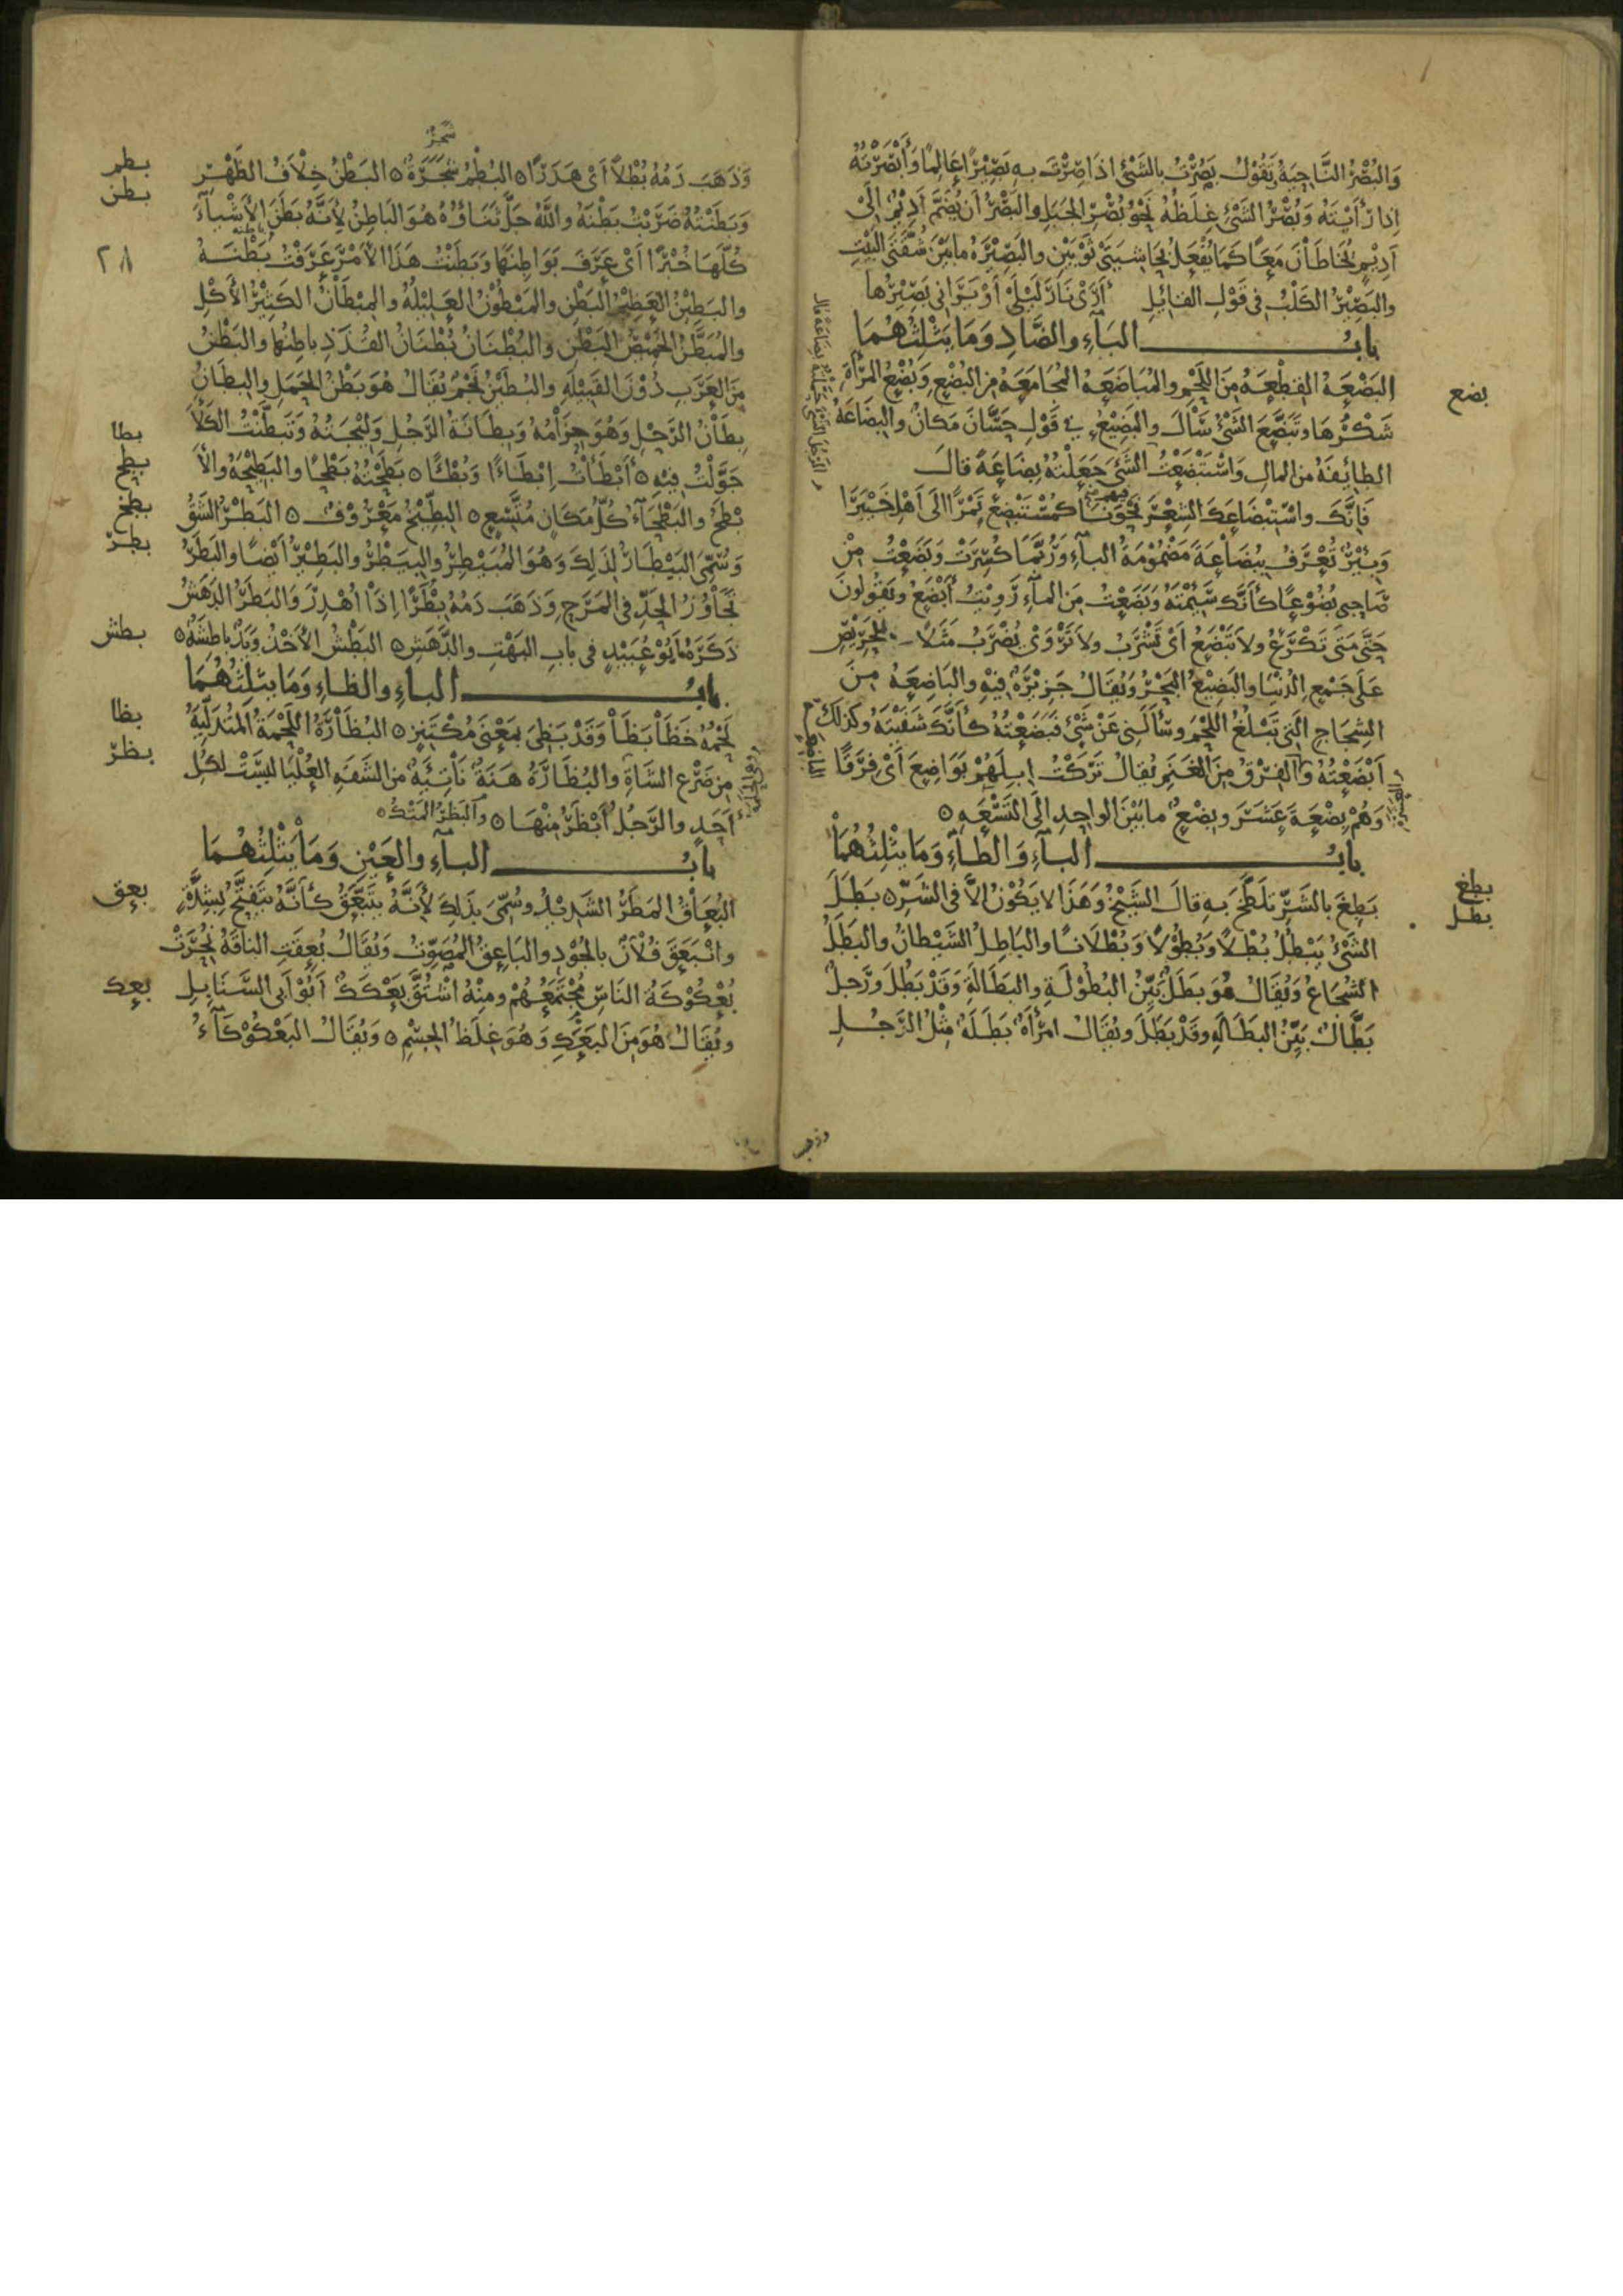 وَالبُصْرُ النَّاحِيَةُ وَتَقُوْلُ بَصُرْتُ بِالشَّيْءِ اذَا صِرْتَ بِهِ بَصِيْرًا عَالِمًا وَأَبْصَرْتُهُ
اِذا رَأَيْتَهُ وَبُصْرُ الشَّيْءِ غِلَظُهُ نَحْوُ بُصْرِ الجَبَلِ والبَصْرُ أَنْ يُضَمَّ أَدِيْمٌ الَى
أَدِيْمٍ يُخَاطَانِ مَعًا كَمَا يُفْعَلُ بِحَاشِيَتَيْ ثَوْبَيْنِ والبَصِيْرَةُ مابَيْنَ شُقَّتَيِ البَيْتِ
والبَصِيْرُ الكَلْبُ فى قَوْلِ القائِلِ أَرَى نَارَ لَيْلَى أَوْ يَرَانِي بَصِيْرُها
بابُ البَاءِ والضَّادِ وَمَا يَثْلِثُهُمَا
البَضْعَةُ القِطْعَةُ مِنَ اللَّحْمِ والمُبَاضَعَةُ المُجَامَعَةُ مِنَ البُضْعِ وَبُضْعُ المَرْأَةِ
شَكْرُهَا وَتَبَضَّعَ الشَّيْءُ سَالَ والبَضِيْعُ فِي قَوْلِ حَسَّانَ مَكَانٌ والبِضَاعَةُ
الطائِفَةُ مِنَ المالِ وَاسْتَبْضَعْتُ الشَّيْءَ جَعَلْتُهُ بِضَاعَةً قالَ
فَإِنَّكَ واسْتِبْضَاعَكَ الشِعْرَ نَحْوَنَا كَمُسْتَبْضِعٍ تَمْرًا الَى أَهْلِ خَيْبَرَا
وَبِئْرٌ تُعْرَفُ بِبُضَاعَةَ مَضْمُوْمَةُ البَاءِ وَرُبَّمَا كُسِرَتْ وَبَضَعْتُ مِنْ
صَاحِبِي بُضُوْعًا كَأَنَّكَ سَئِمْتَهُ وَبَضَعْتُ مِنَ المَاءِ رَوِيْتُ أَبْضَعُ وَيَقُوْلُونَ
حَتَّى مَتَى تَكْرَعُ ولا تَبْضَعُ أَيْ تَشْرَبُ ولا تَرْوَى يُضْرَبُ مَثَلًا لِلحَرِيْصِ
عَلَى جَمْعِ الدُنْيَا والبَضِيْعُ البَحْرُ وَيُقَالُ جَزِيْرَةٌ فِيْهِ والبَاضِعَةُ مِنَ
الشِجَاجِ الَّتِي تَبْلُغُ اللَّحْمَ وسَأَلَنِي عَنْ شَيْءٍ فَبَضَعْتُهُ كَأَنَّكَ شَفَيْتَهُ وَكَذلِكَ
أَبْضَعْتُهُ وَالفِرْقُ مِنَ الغَنَمِ يُقالُ تَرَكْتُ إِبِلَهُمْ بَوَاضِعَ أَيْ فِرَقًا
وَهُمْ بِضْعَةَ عَشَرَ وبِضْعٌ مابَيْنَ الواحِدِ الَى التِّسْعَةِ ه
بابُ البَاءِ وَالطَاءِ وَمَا يَثْلِثُهُمَا
بَطِغَ بِالشَرِّ تَلَطَّخَ بِهِ قالَ الشَيْخُ وَهَذَا لا يَكُوْنُ الَّا فى الشَرِّ ه بَطَلَ
الشَّيْءُ يَبْطُلُ بُطْلًا وَبُطُوْلًا وَبُطْلَانًا والبَاطِلُ الشَيْطانُ والبَطَلُ
الشُجَاعُ وَيُقَالُ هُوَ بَطَلٌ بَيِّنُ البُطُوْلَةِ والبَطَالَةِ وَقَدْ بَطُلَ وَرَجُلٌ
بَطَّالٌ بَيِّنُ البَطَالَةِ وقَدْ بَطَلَ ويُقَالُ امْرَأَةٌ بَطَلَةٌ مِثْلُ الرَّجُلِ
بضع
بطغ
بطل
وذهب
شجر
وَذَهَبَ دَمُهُ بُطْلًا أَىْ هَدَرًا ه البُطْمُ شَجَرَةٌ ه البَطْنُ خِلَافُ الظَهْرِ
وَبَطَنْتُهُ ضَرَبْتُ بَطْنَهُ واللَّهُ جَلَّ ثَنَاؤُهُ هُوَ البَاطِنُ لِأَنَّهُ بَطَنَ الأَشْيَاءَ
كُلَّهَا خُبْرًا أَىْ عَرَفَ بَوَاطِنَهَا وَبَطَنْتُ هَذَا الأَمْرَ عَرَفْتُ بَطْنَهُ
والبَطِيْنُ العَظِيْمُ البَطْنِ والمَبْطُوْنُ العَلِيْلُهُ والمِبْطَانُ الكَثِيْرُ الأَكْلِ
والمُبَطَّنُ الخَمِيْصُ البَطْنِ والبُطْنَانُ بُطْنَانُ القُذَذِ باطِنُهَا والبَطْنُ
مِنَ العَرَبِ دُوْنَ القَبِيْلَةِ والبُطَيْنُ نَجْمٌ يُقَالُ هُوَ بَطْنُ الحَمَلِ والبِطَانُ
بِطَانُ الرَّحْلِ وَهُوَ حِزَامُهُ وَبِطَانَةُ الرَّجُلِ وَلِيْجَتُهُ وَتَبَطَّنْتُ الكَلَأَ
جَوَّلْتُ فِيْهِ ه أَبْطَأْتُ إِبْطَاءًا وَبُطْأً ه بَطَحْتُهُ بَطْحًا والبَطِيْحَةُ والأَ
بْطَحُ والبَطْحَاءُ كُلُّ مَكَانٍ مُتَّسِعٍ ه البِطِّيْخُ مَعْرُوْفٌ ه البَطْرُ الشَقُّ
وَسُمِّيَ البَيْطَارُ لِذَلِكَ وَهُوَ المُبَيْطِرُ والبِيَطْرُ والبَطِيْرُ أَيْضًا والبَطَرُ
تَجَاوُزُ الحَدِّ فى المَرَحِ وَذَهَبَ دَمُهُ بِطْرًا اِذَا أُهْدِرَ وَالبَطَرُ الدَهَشُ
ذَكَرَهُ أَبُوْ عُبَيْدٍ فى بابِ البَهْتِ والدَّهَشِ ه البَطْشُ الأَخْذُ وَيَدٌ باطِشَةٌ ه
بابُ البَاءِ والظَاءِ وَمَا يَثْلِثُهُمَا
لَحْمُهُ خَظَا بَظَا وَقَدْ بَظِيَ بمَعْنَى مُكْتَنِزٍ ه البُظَارَةُ اللَّحْمَةُ المُتَدَلِّيَةُ
مِن ضَرْعِ الشَاةِ والبُظَارَةُ هَنَةٌ نَاتِئَةٌ من الشَفَةِ العُلْيَا لَيْسَتْ لِكُلِّ
أَحَدٍ والرَّجُلُ أَبْظَرُ مِنْهَا ه والبَظْرُ المَتْكُ ه
بابُ البَاءِ والعَيْنِ وَمَا يَثْلِثُهُمَا
البُعَاقُ المَطَرُ الشَدِيْدُ وسُمِّيَ بذَلِكَ لِأَنَّهُ يَتَبَعَّقُ كَأَنَّهُ يَتَفَتَّحُ بِشِدَّةٍ
وانْبَعَقَ فُلَانٌ بالجُوْدِ والبَاعِقُ المُصَوِّتُ وَيُقَالُ بُعِقَتِ الناقَةُ نُحِرَتْ
بُعْكُوْكَةُ النَاسِ مُجْتَمَعُهُمْ ومِنْهُ اشْتُقَّ بَعْكَكٌ أَبُوْ أَبِى السَّنَابِلِ
ويُقَالُ هُوَ مِنَ البَعَكِ وَهُوَ غِلَظُ الجِسْمِ ه وَيُقَالُ البَعْكُوْكَاءُ
بطم
بطن
٢٨
بطا
بطح
بطخ
بطر
بطش
بظا
بظر
بعق
بعك